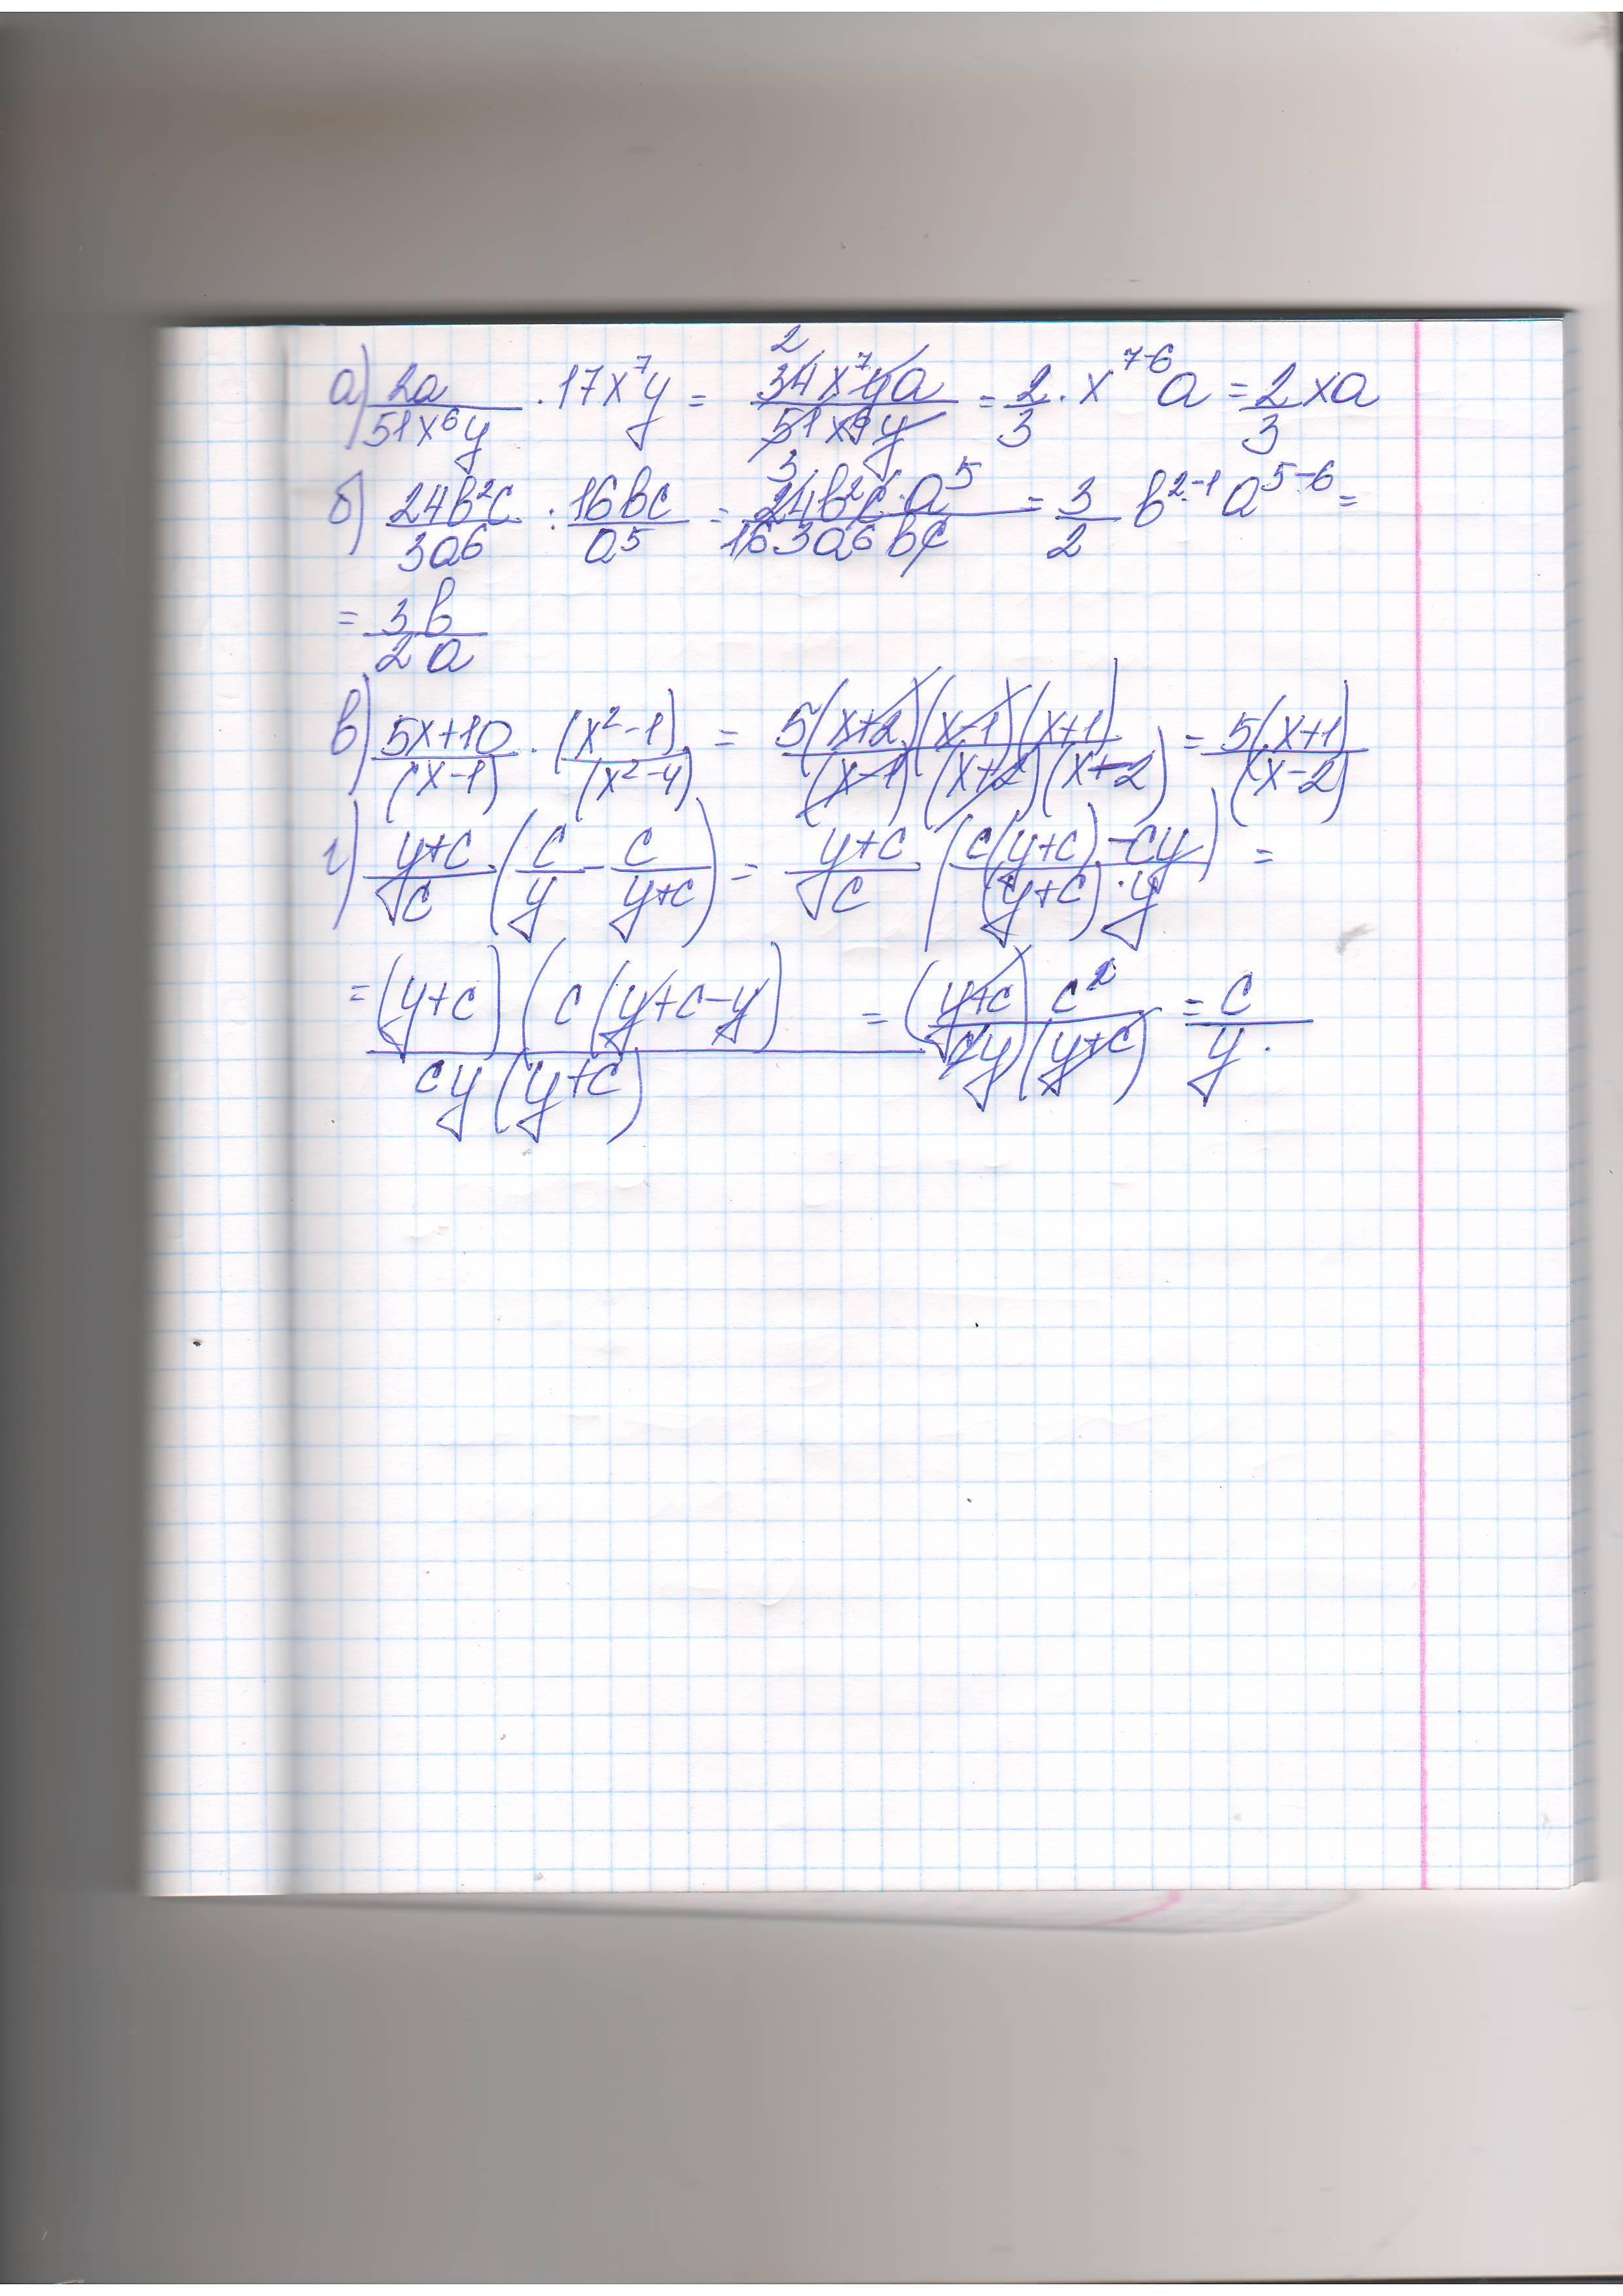 а) 2a/(51x⁶y) · 17x⁷y = 34x⁷ya/(51x⁶y) = 2/3 · x⁷⁻⁶a = 2/3 xa
2 3
б) 24b²c/(3a⁶) : 16bc/a⁵ = 24b²c·a⁵/(16 3a⁶bc) = 3/2 b²⁻¹a⁵⁻⁶ =
= 3b/(2a)
в) (5x+10)/(x-1) · (x²-1)/(x²-4) = 5(x+2)(x-1)(x+1)/((x-1)(x+2)(x-2)) = 5(x+1)/(x-2)
г) (y+c)/c · (c/y - c/(y+c)) = (y+c)/c · ((c(y+c)-cy)/((y+c)·y)) =
= (y+c)(c(y+c-y)/(cy(y+c)) = (y+c)c²/(cy(y+c)) = c/y.